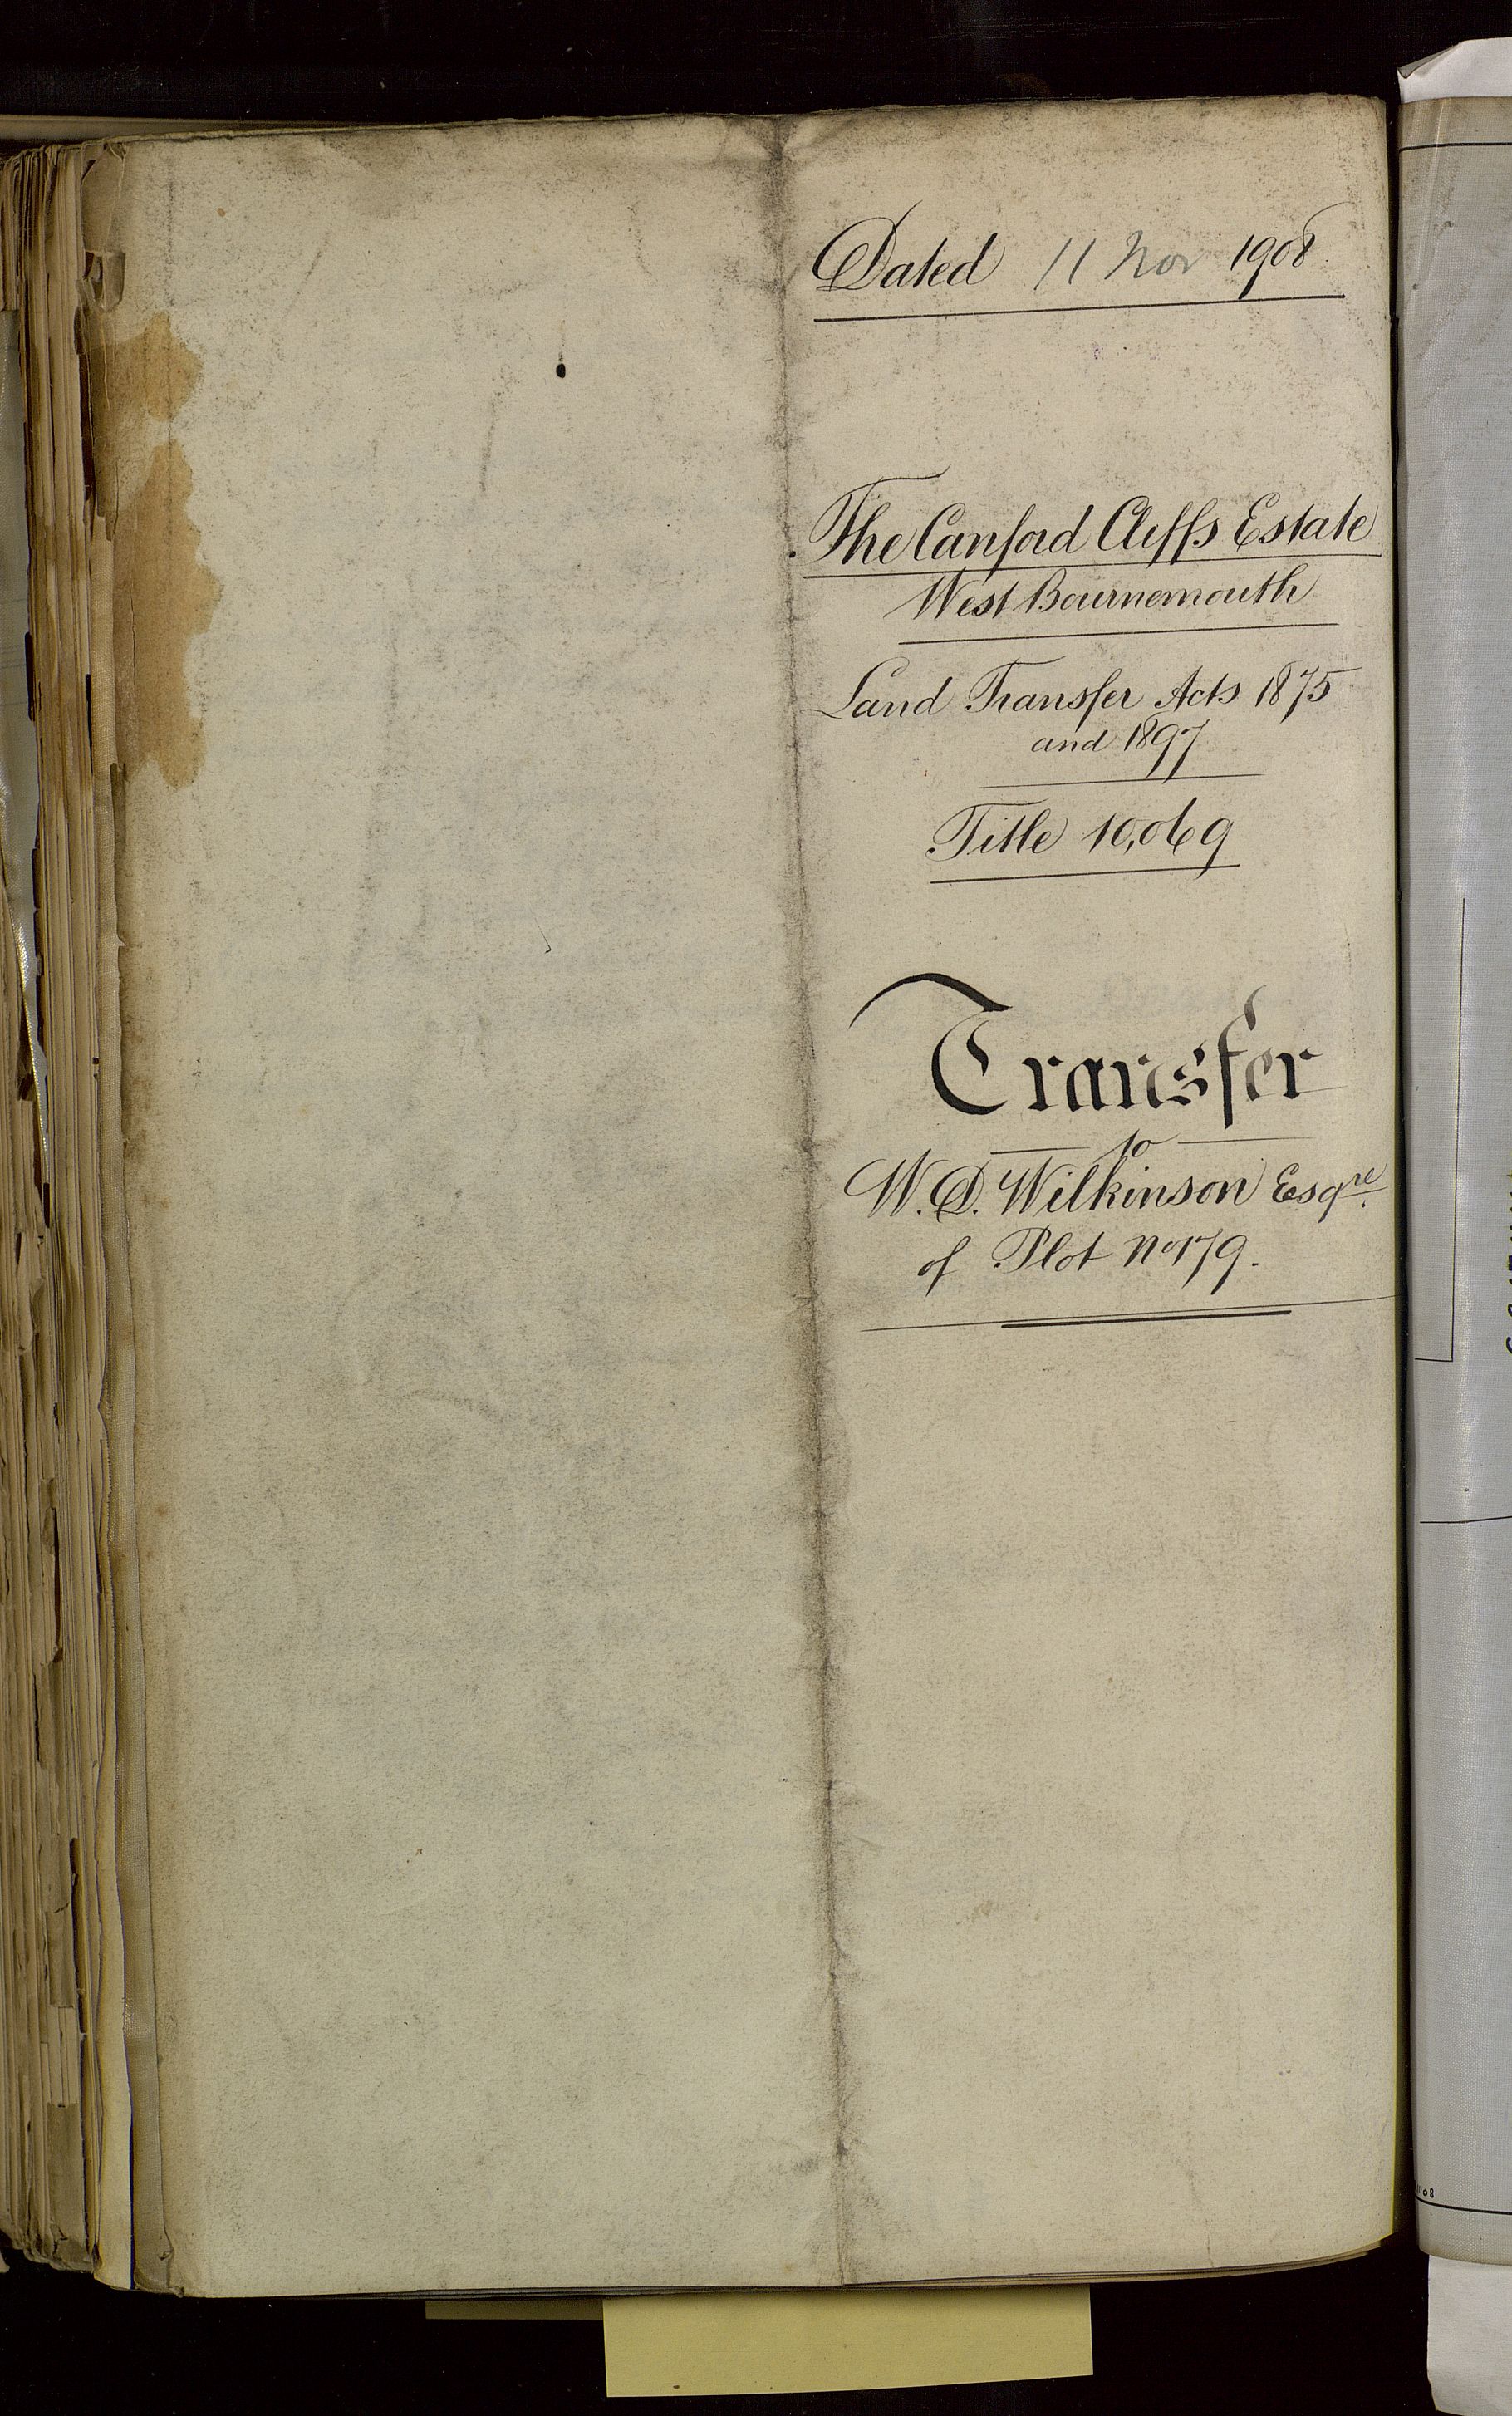 Dated 11 Nov 1908.
The Canford Cliffs Estate
West Bournemouth
Land Transfer Acts 1875
and 1897
Title 10,069
Transfer
to
W. D. Wilkinson Esqre.
of Plot No 179.